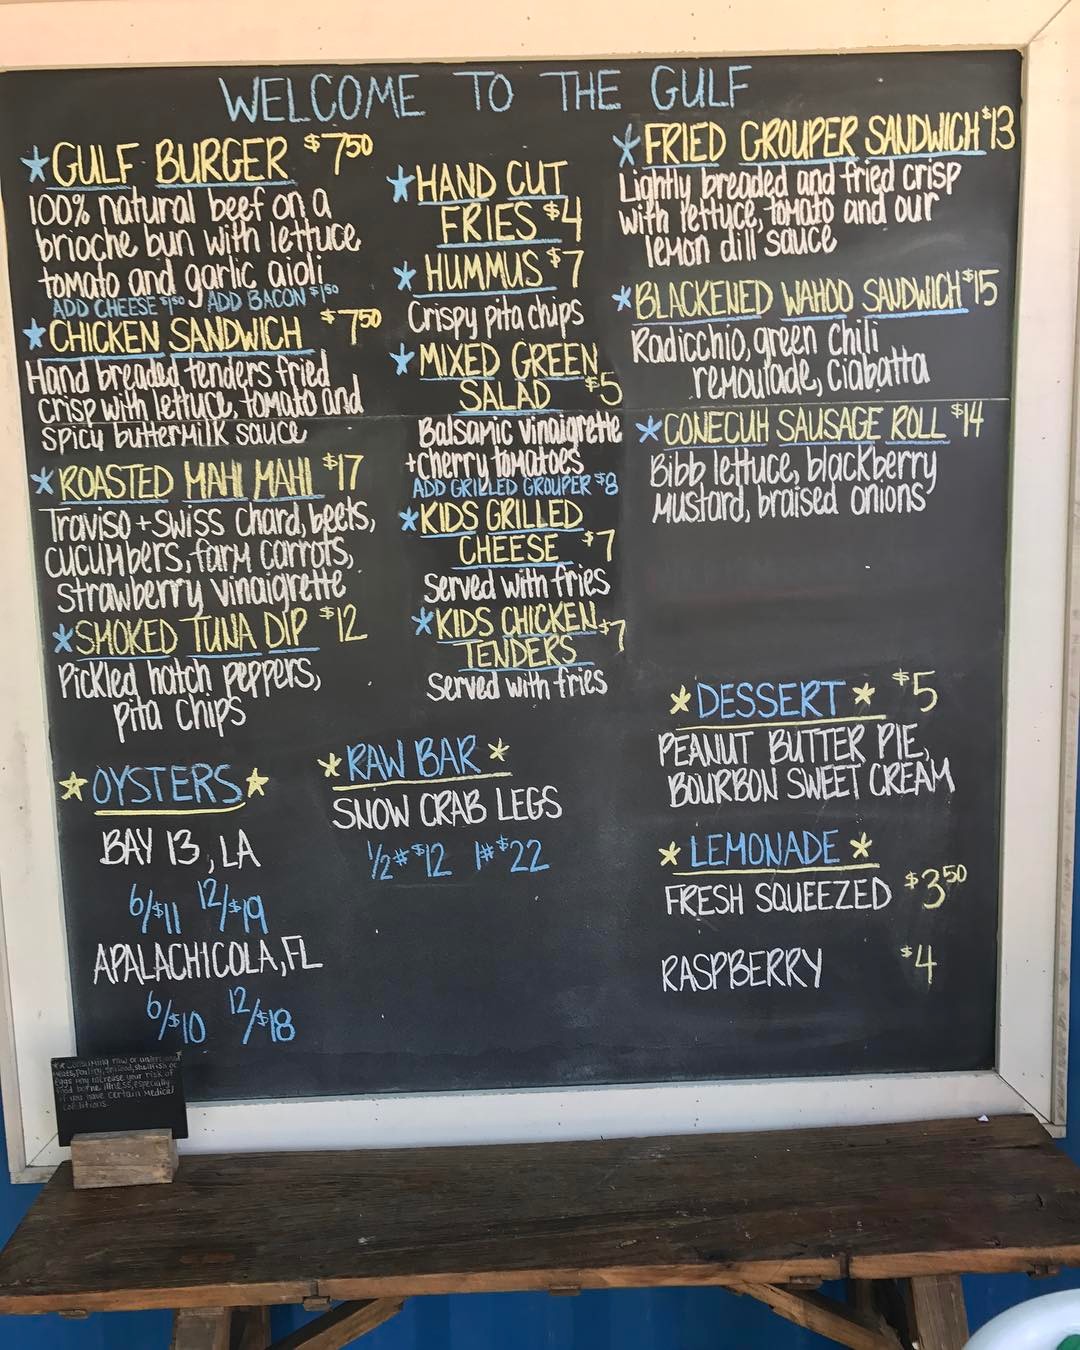 WELCOME TO THE GULF
*GULF BURGER $7.50
100% natural beef on a
brioche bun with lettuce
tomato and garlic aioli
ADD CHEESE $1.50 ADD BACON $1.50
*CHICKEN SANDWICH $7.50
Hand breaded tenders fried
crisp with lettuce, tomato and
spicy buttermilk sauce
*ROASTED MAHI MAHI $17
Traviso + swiss chard, beets,
cucumbers, farm carrots,
strawberry vinaigrette
*SMOKED TUNA DIP $12
Pickled hatch peppers,
pita chips
*HAND CUT
FRIES $4
*HUMMUS $7
Crispy pita chips
*MIXED GREEN
SALAD $5
Balsamic vinaigrette
+cherry tomatoes
ADD GRILLED GROUPER $8
*KIDS GRILLED
CHEESE $7
Served with fries
*KIDS CHICKEN $7
TENDERS
Served with fries
*FRIED GROUPER SANDWICH $13
Lightly breaded and fried crisp
with lettuce, tomato and our
lemon dill sauce
*BLACKENED WAHOO SANDWICH $15
Radicchio, green chili
remoulade, ciabatta
*CONECUH SAUSAGE ROLL $14
Bibb lettuce, blackberry
mustard, braised onions
*OYSTERS*
BAY 13, LA
6/$11 12/$19
APALACHICOLA, FL
6/$10 12/$18
*RAW BAR*
SNOW CRAB LEGS
1/2# $12 1# $22
*DESSERT* $5
PEANUT BUTTER PIE,
BOURBON SWEET CREAM
*LEMONADE*
FRESH SQUEEZED $3.50
RASPBERRY $4
** Consuming raw or undercooked
meats, poultry, seafood, shellfish or
eggs may increase your risk of
food borne illness, especially
if you have certain medical
conditions.